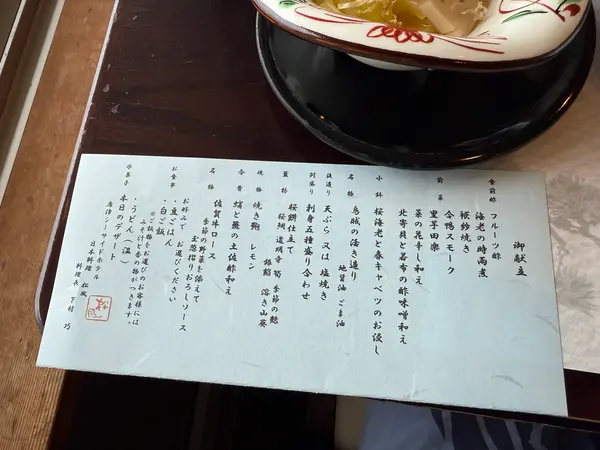 御献立
食前酢 フルーツ酢
海老の時雨煮
袱紗焼き
合鴨スモーク
前菜 里芋田楽
菜の花辛し和え
北寄貝と若布の酢味噌和え
小鉢 桜海老と春キャベツのお浸し
名物 烏賊の活き造り
地醤油 ごま油
後造り 天ぷら 又は 塩焼き
刺盛り 刺身五種盛り合わせ
蓋物 桜餅仕立て
桜鯛 道明寺 筍 季節の麩
銀餡 溶き山葵
焼物 焼き鮑 レモン
合肴 蛸と蕨の土佐酢和え
名物 佐賀牛ロース
季節の野菜を添えて
玉葱摺りおろしソース
お食事 お好みで お選びください
・豆ごはん
・白ご飯
※ご飯物をお選びのお客様には
みそ汁と香の物がつきます。
・うどん(温)
水菓子 本日のデザート
唐津シーサイドホテル
日本料理 松風
料理長 下村 巧